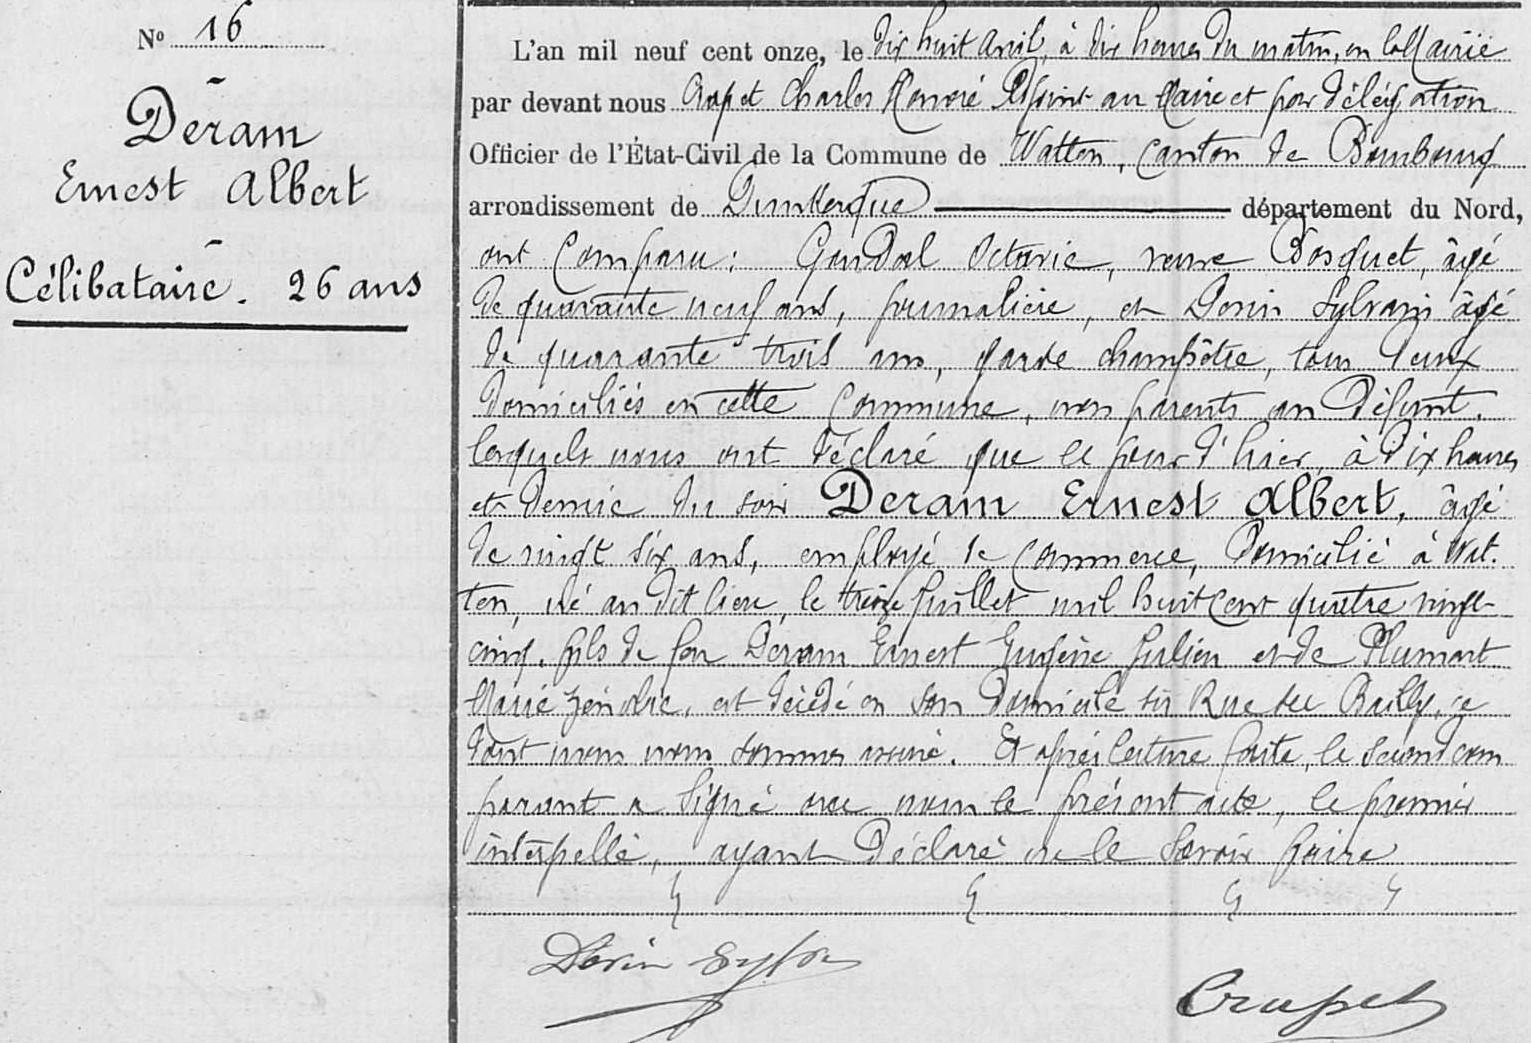 N° 16
Deram
Ernest Albert
Célibataire. 26 ans
L'an mil neuf cent onze, le dix huit avril, à dix heures du matin, en la Mairie
par devant nous Crapet Charles Honoré Adjoint au Maire et par délégation
Officier de l'État-Civil de la Commune de Watten, canton de Bourbourg
arrondissement de Dunkerque département du Nord,
ont comparu: Octavie, veuve Bosquet, âgé
de quarante neuf ans, journalière, et Dorin Sylvain âgé
de quarante trois ans, garde champêtre, tous deux
domiciliés en cette commune, non parents au défunt.
lesquels nous ont déclaré que le jour d'hier, à dix heures
et demie du soir Deram Ernest Albert, âgé
de vingt six ans, employé de commerce, domicilié à Wat-
ten, né au dit lieu, le treize juillet mil huit cent quatre vingt
cinq, fils de feu Deram Ernest Eugène Julien et de Plumart
Marie, est décédé en son domicile sis Rue du Bailly, ce
dont nous nous sommes assuré. Et après lecture faite, le second com
parant a signé avec nous le présent acte, le premier
interpellé, ayant déclaré ne le savoir faire
Dorin Sylvain
Crapet